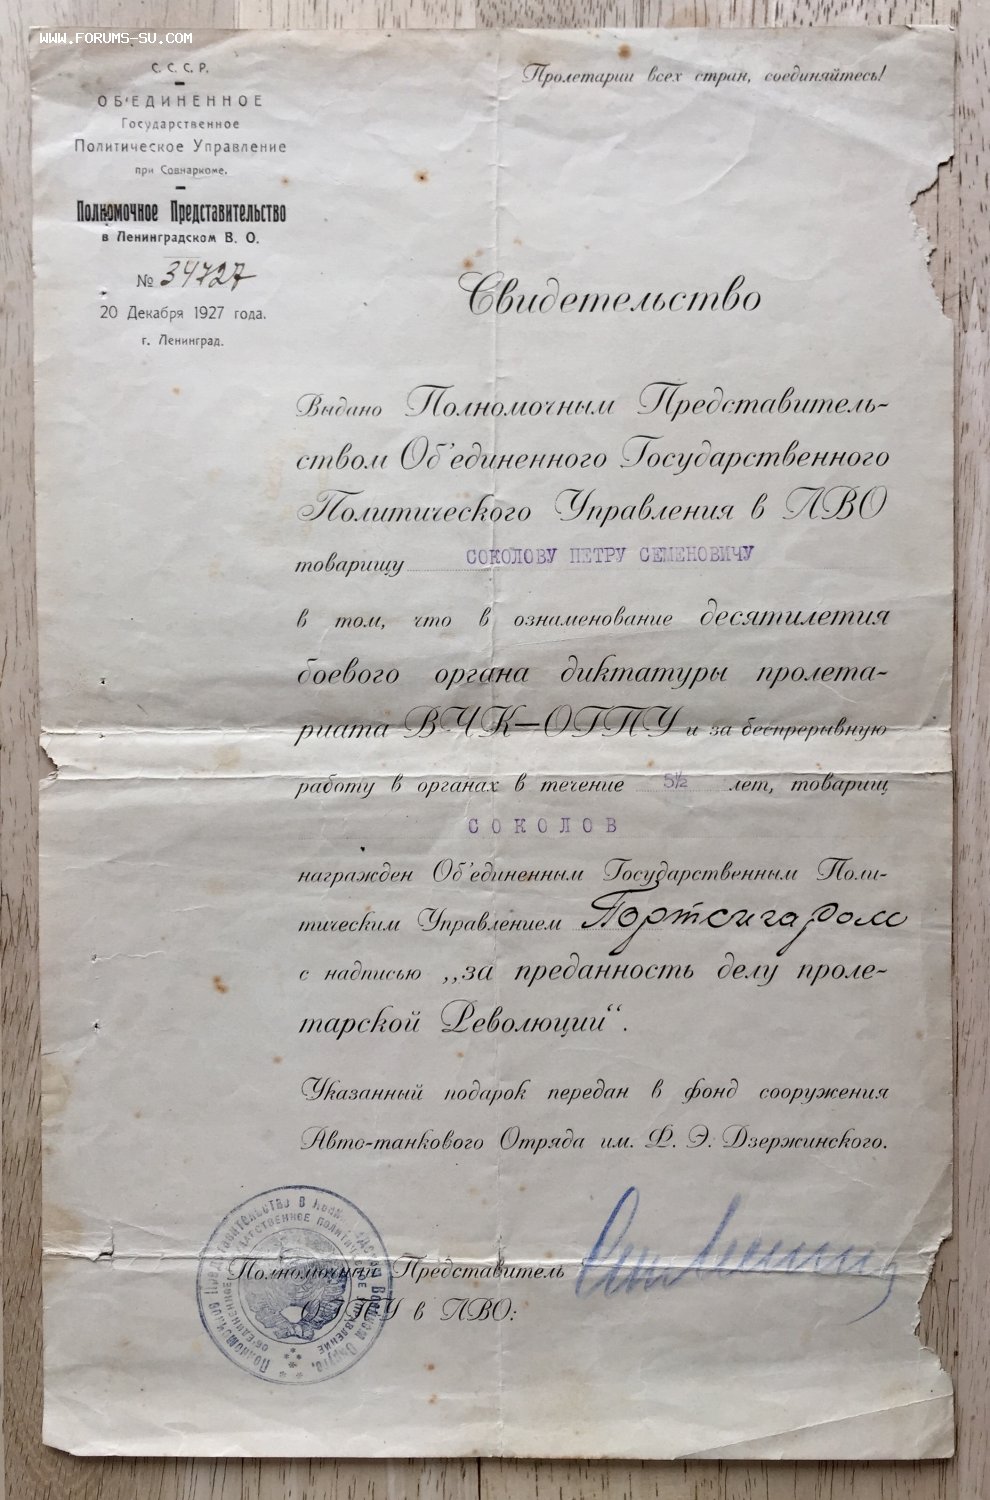 www.forums-su.com
С. С. С. Р.
ОБ'ЕДИНЕННОЕ
Государственное
Политическое Управление
при Совнаркоме.
Полномочное Представительство
в Ленинградском В. О.
№ 34727
20 Декабря 1927 года.
г. Ленинград.
Пролетарии всех стран, соединяйтесь!
Свидетельство
Выдано Полномочным Представитель-
ством Об'единенного Государственного
Политического Управления в ЛВО
товарищу СОКОЛОВУ ПЕТРУ СЕМЕНОВИЧУ
в том, что в ознаменование десятилетия
боевого органа диктатуры пролета-
риата ВЧК—ОГПУ и за беспрерывную
работу в органах в течение 5½ лет, товарищ
СОКОЛОВ
награжден Об'единенным Государственным Поли-
тическим Управлением Портсигаром
с надписью „за преданность делу проле-
тарской Революции“.
Указанный подарок передан в фонд сооружения
Авто-танкового Отряда им. Ф. Э. Дзержинского.
Полномочный Представитель
ОГПУ в ЛВО: